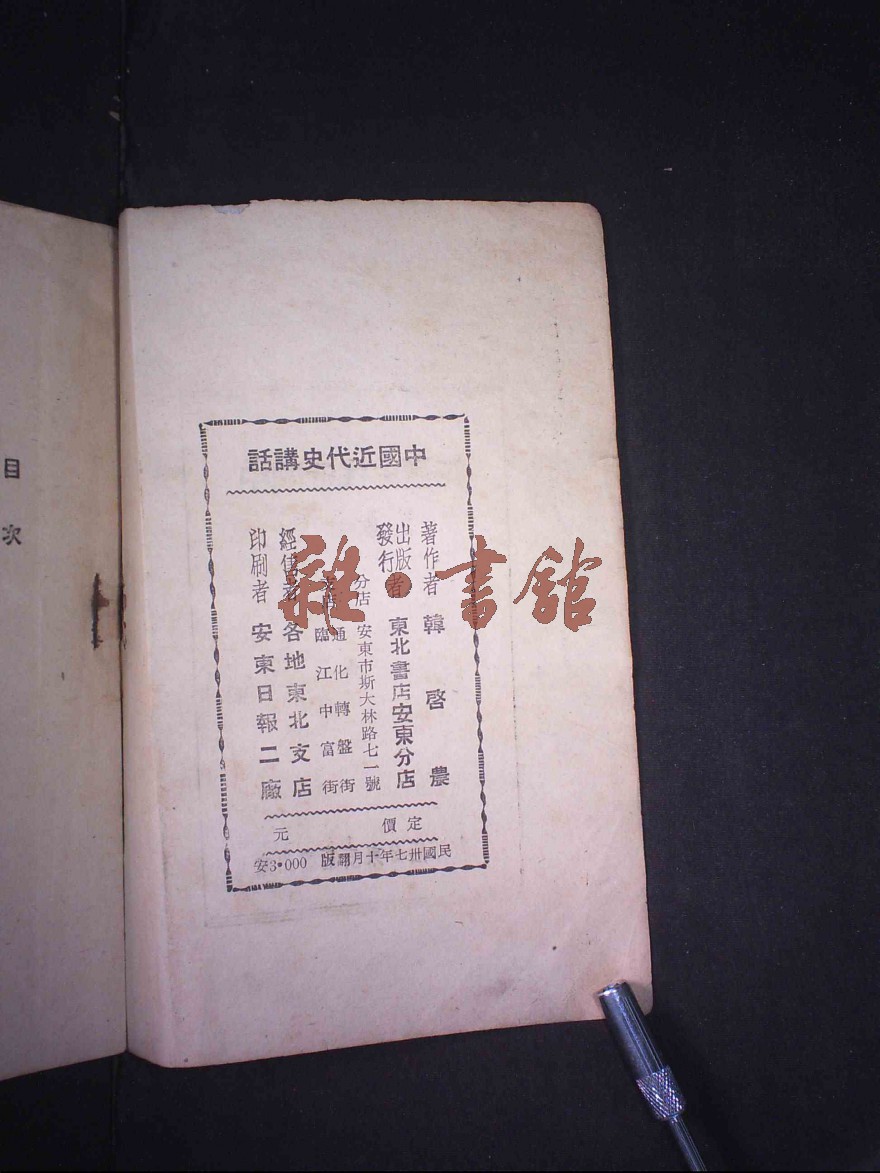 中國近代史講話
著作者 韓啓農
出版者
發行 東北書店安東分店
分店 安東市斯大林路七一號
通化轉盤街
臨江中富街
經售者 各地東北支店
印刷者 安東日報二廠
定價 元
民國卅七年十月翻版 3•000安
目次
雜·書館